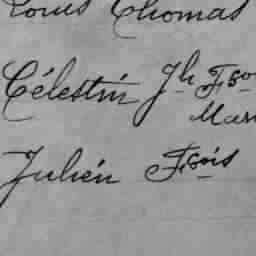 Louis Thomas
Célestin Jh Fso
Mar
Julien Fsois